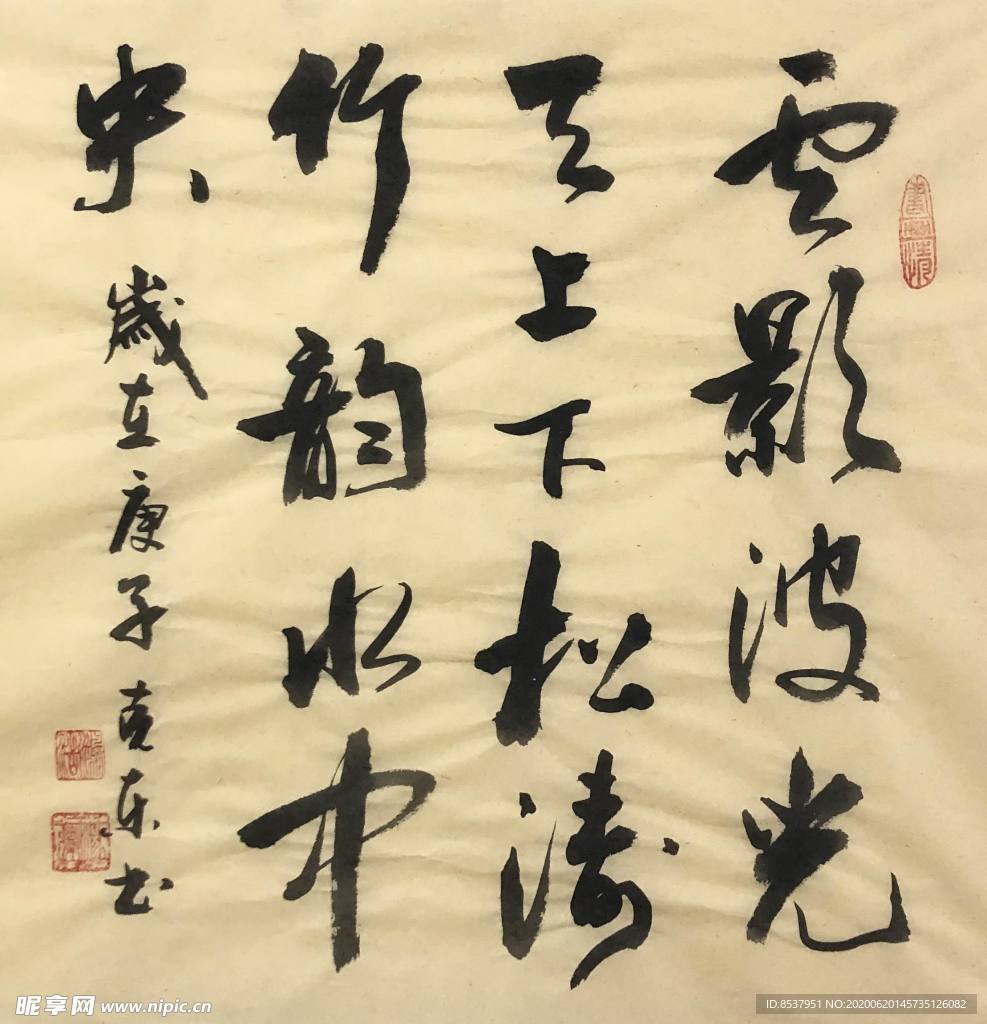 云影波光
天上下松涛
竹韵水中
央
岁在庚子克东书
昵享网 www.nipic.cn
ID:8537951 NO:20200620145735126082